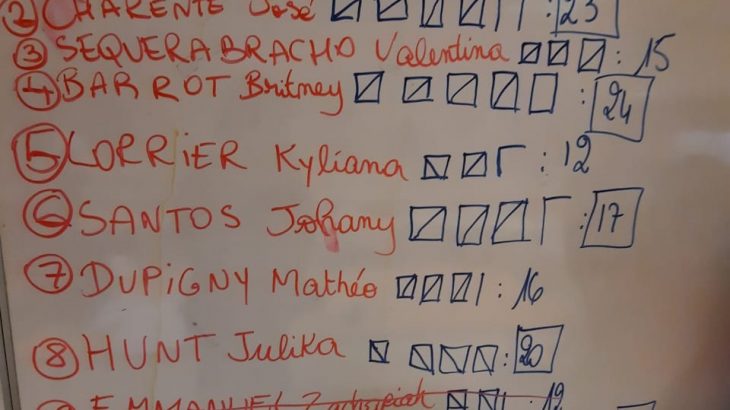 ② CHARENTE José : 23
③ SEQUERA BRACHO Valentina : 15
④ BARROT Britney : 24
⑤ LORRIER Kyliana : 12
⑥ SANTOS Johany : 17
⑦ DUPIGNY Mathéo : 16
⑧ HUNT Julika : 20
EMMANUEL : 12